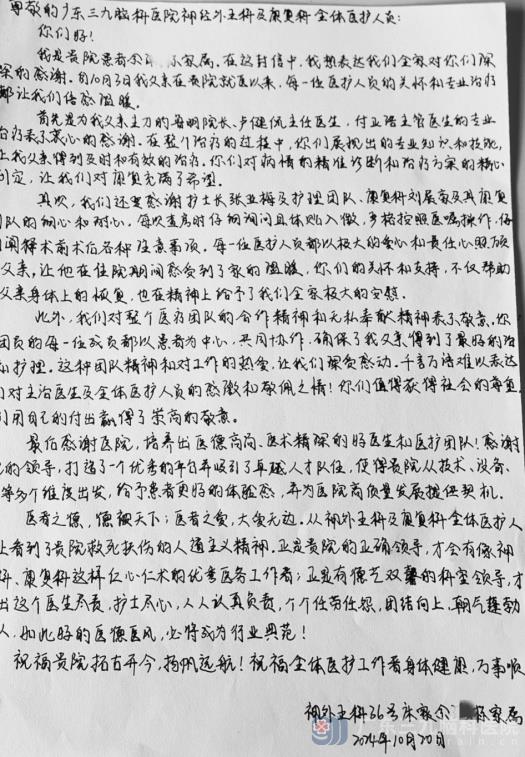 尊敬的广东三九脑科医院神经外五科及康复科全体医护人员:
你们好!
我是贵院患者余 家属。在这封信中,我想表达我们全家对你们深
深的感谢。自10月3日我父亲在贵院就医以来,每一位医护人员的关怀和专业治疗
都让我们倍感温暖。
首先是为我父亲主刀的鲁明院长、卢健侃主任医生,付亚浩主管医生的专业
治疗表示衷心的感谢。在整个治疗的过程中,你们展现出的专业知识和技能,
让我父亲得到及时和有效的治疗。你们对病情的精准诊断和治疗方案的精心
制定,让我们对康复充满了希望。
其次,我们还要感谢护士长张亚梅及护理团队、康复科刘展富及其康复
团队的细心和耐心。每次查房时仔细询问且体贴入微,严格按照医嘱操作,仔
细解释术前术后各种注意事项。每一位医护人员都以极大的爱心和责任心照顾
父亲,让他在住院期间感受到了家的温暖。你们的关怀和支持,不仅帮助
父亲身体上的恢复,也在精神上给予了我们全家极大的安慰。
此外,我们对整个医疗团队的合作精神和无私奉献精神表示敬意。你
团员的每一位成员都以患者为中心,共同协作,确保了我父亲得到了最好的治
和护理。这种团队精神和对工作的热爱,让我们深受感动。千言万语难以表达
们对主治医生及全体医护人员的感激和敬佩之情!你们值得获得社会的尊重,
们用自己的付出赢得了崇高的敬意。
最后感谢医院,培养出医德高尚、医术精深的好医生和医护团队!感谢
院的领导,打造了一个优秀的平台并吸引了卓越人才队伍,使得贵院从技术、设备、
等多个维度出发,给予患者更好的体验感,并为医院高质量发展提供契机。
医者之德,德被天下;医者之爱,大爱无边。从神外五科及康复科全体医护人
上看到了贵院救死扶伤的人道主义精神。正是贵院的正确领导,才会有像神
科、康复科这样仁心仁术的优秀医务工作者;正是有德艺双馨的科室领导,才
出这个医生尽责,护士尽心,人人认真负责,个个任劳任怨,团结向上,朝气蓬勃
人,如此好的医德医风,必将成为行业典范!
祝福贵院拓古开今,扬帆远航!祝福全体医护工作者身体健康,万事顺
神外五科36号床家余 家属
2024年10月20日
广东三九脑科医院